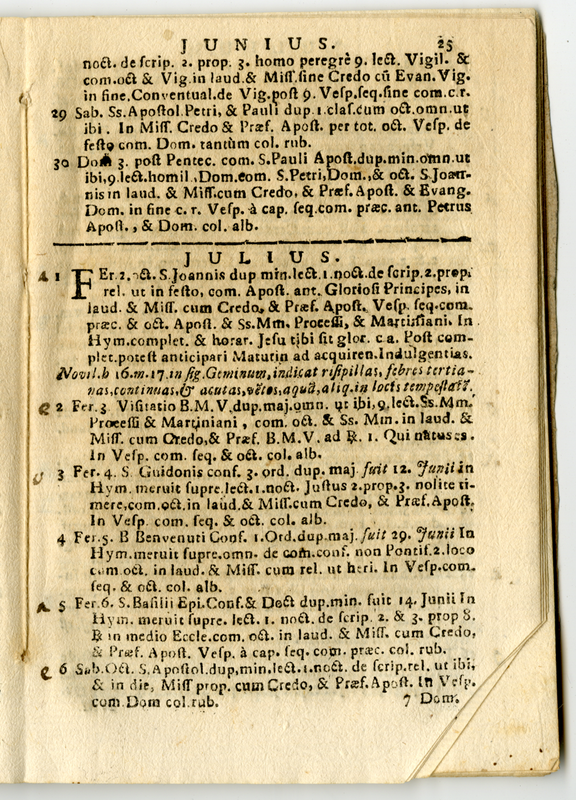 JUNIUS. 25
noct. de scrip. 2. prop. 3. homo peregrè 9. lect. Vigil. &
com.oct & Vig.in laud.& Miss.sine Credo cũ Evan.Vig.
in fine.Conventual.de Vig.post 9. Vesp.seq.sine com.c.r.
29 Sab. Ss.Apostol.Petri, & Pauli dup.1.clas.cum oct.omn.ut
ibi. In Miss. Credo & Præf. Apost. per tot. oct. Vesp. de
festo com. Dom. tantùm col. rub.
30 Dom. 3. post Pentec. com. S.Pauli Apost.dup.min.omn.ut
ibi,9.lect.homil.,Dom.com. S.Petri,Dom.,& oct. S.Joan-
nis in laud. & Miss.cum Credo, & Præf. Apost. & Evang.
Dom. in fine c. r. Vesp. à cap. seq.com. præc. ant. Petrus
Apost., & Dom. col. alb.
JULIUS.
A 1 FEr.2.oct. S.Joannis dup min.lect.1.noct.de scrip.2.prop.
rel. ut in festo, com. Apost. ant. Gloriosi Principes, in
laud. & Miss. cum Credo, & Præf. Apost. Vesp. seq.com.
præc. & oct. Apost. & Ss.Mm. Processi, & Martiniani. In
Hym.complet. & horar. Jesu tibi sit glor. c.a. Post com-
plet.potest anticipari Matutin ad acquiren.Indulgentias.
Novil.h 16.m.17.in sig.Geminum,indicat risipillas, febres tertia-
nas,continuas,& acutas,vẽtos,aquã,aliq.in locis tempestatẽ.
e 2 Fer.3. Visitatio B.M.V.dup.maj.omn. ut ibi,9.lect.Ss.Mm.
Processi & Martiniani, com. oct. & Ss. Mm. in laud. &
Miss. cum Credo,& Præf. B.M.V. ad ℟. 1. Qui natus es.
In Vesp. com. seq. & oct. col. alb.
3 Fer. 4. S. Guidonis conf. 3. ord. dup. maj. fuit 12. Junii in
Hym. meruit supre.lect.1.noct. Justus 2.prop.3. nolite ti-
mere,com.oct.in laud.& Miss.cum Credo, & Præf.Apost.
In Vesp. com. seq. & oct. col. alb.
4 Fer.5. B Benvenuti Conf. 1.Ord.dup.maj. fuit 29. Junii In
Hym.meruit supre.omn. de com.conf. non Pontif.2.loco
com.oct. in laud. & Miss. cum rel. ut heri. In Vesp.com.
seq. & oct. col. alb.
A 5 Fer.6. S.Basilii Epi.Conf.& Doct dup.min. fuit 14. Junii In
Hym. meruit supre. lect. 1. noct. de scrip. 2. & 3. prop 8.
℟ in medio Eccle.com. oct. in laud. & Miss. cum Credo,
& Præf. Apost. Vesp. à cap. seq. com. præc. col. rub.
e 6 Sab.Oct. S.Apostol.dup,min.lect.1.noct. de scrip.rel. ut ibi,
& in die, Miss prop. cum Credo, & Præf.Apost. In Vesp.
com.Dom col.rub. 7 Dom.